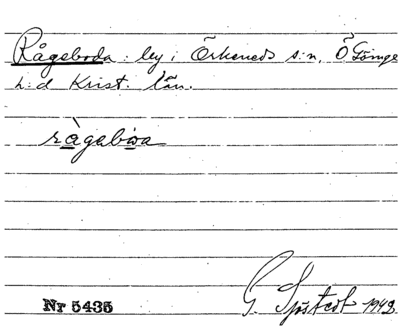 Rågeboda: by i Örkeneds s:n, Ö Göinge
h:d Krist. län.
rågeboa
Nr 5435
G. Sjöstedt 1943